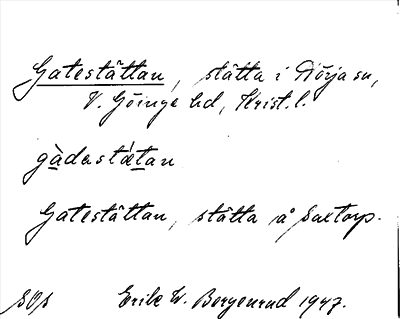 Gatestättan, stätta i Nörja sn,
V. Göinge hd, Krist. l.
gàdestǽtan
Gatestättan, stätta å Saxtorp.
SOs Erik W. Bergenrud 1947.